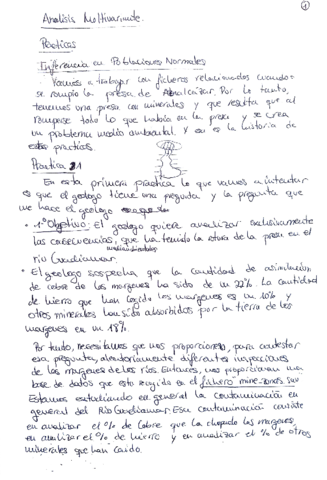 1
Análisis Multivariante.
Prácticas
Inferencia en Poblaciones Normales
Vamos a trabajar con ficheros relacionados cuando
se rompió la presa de Aznalcóllar. Por lo tanto,
tenemos una presa con minerales y que resulta que al
romperse todo lo que había en la presa y se crea
un problema medio ambiental. Y esa es la historia de
esta práctica.
Práctica 1
En esta primera práctica lo que vamos a intentar
es que el geólogo tiene una pregunta y la pregunta que
nos hace el geólogo
• 1º Objetivo: El geólogo quiere analizar exclusivamente
las consecuencias, que ha tenido la rotura de la presa en el
río Guadiamar.
• El geólogo sospecha que la cantidad de asimilación
de cobre de los márgenes ha sido de un 22%. La cantidad
de hierro que han cogido los márgenes es un 10% y
otros minerales han sido absorbidos por la tierra de los
márgenes en un 18%.
Por tanto, necesitamos que nos proporcionen, para contestar
esa pregunta, aleatoriamente diferentes inspecciones
de los márgenes de los ríos. Entonces, nos proporcionan una
base de datos que está recogida en el fichero mine-sions.sav
Estamos estudiando en general la contaminación en
general del Río Guadiamar. Esa contaminación consiste
en analizar el % de Cobre que ha chupado las márgenes,
en analizar el % de hierro y en analizar el % de otros
minerales que han caído.